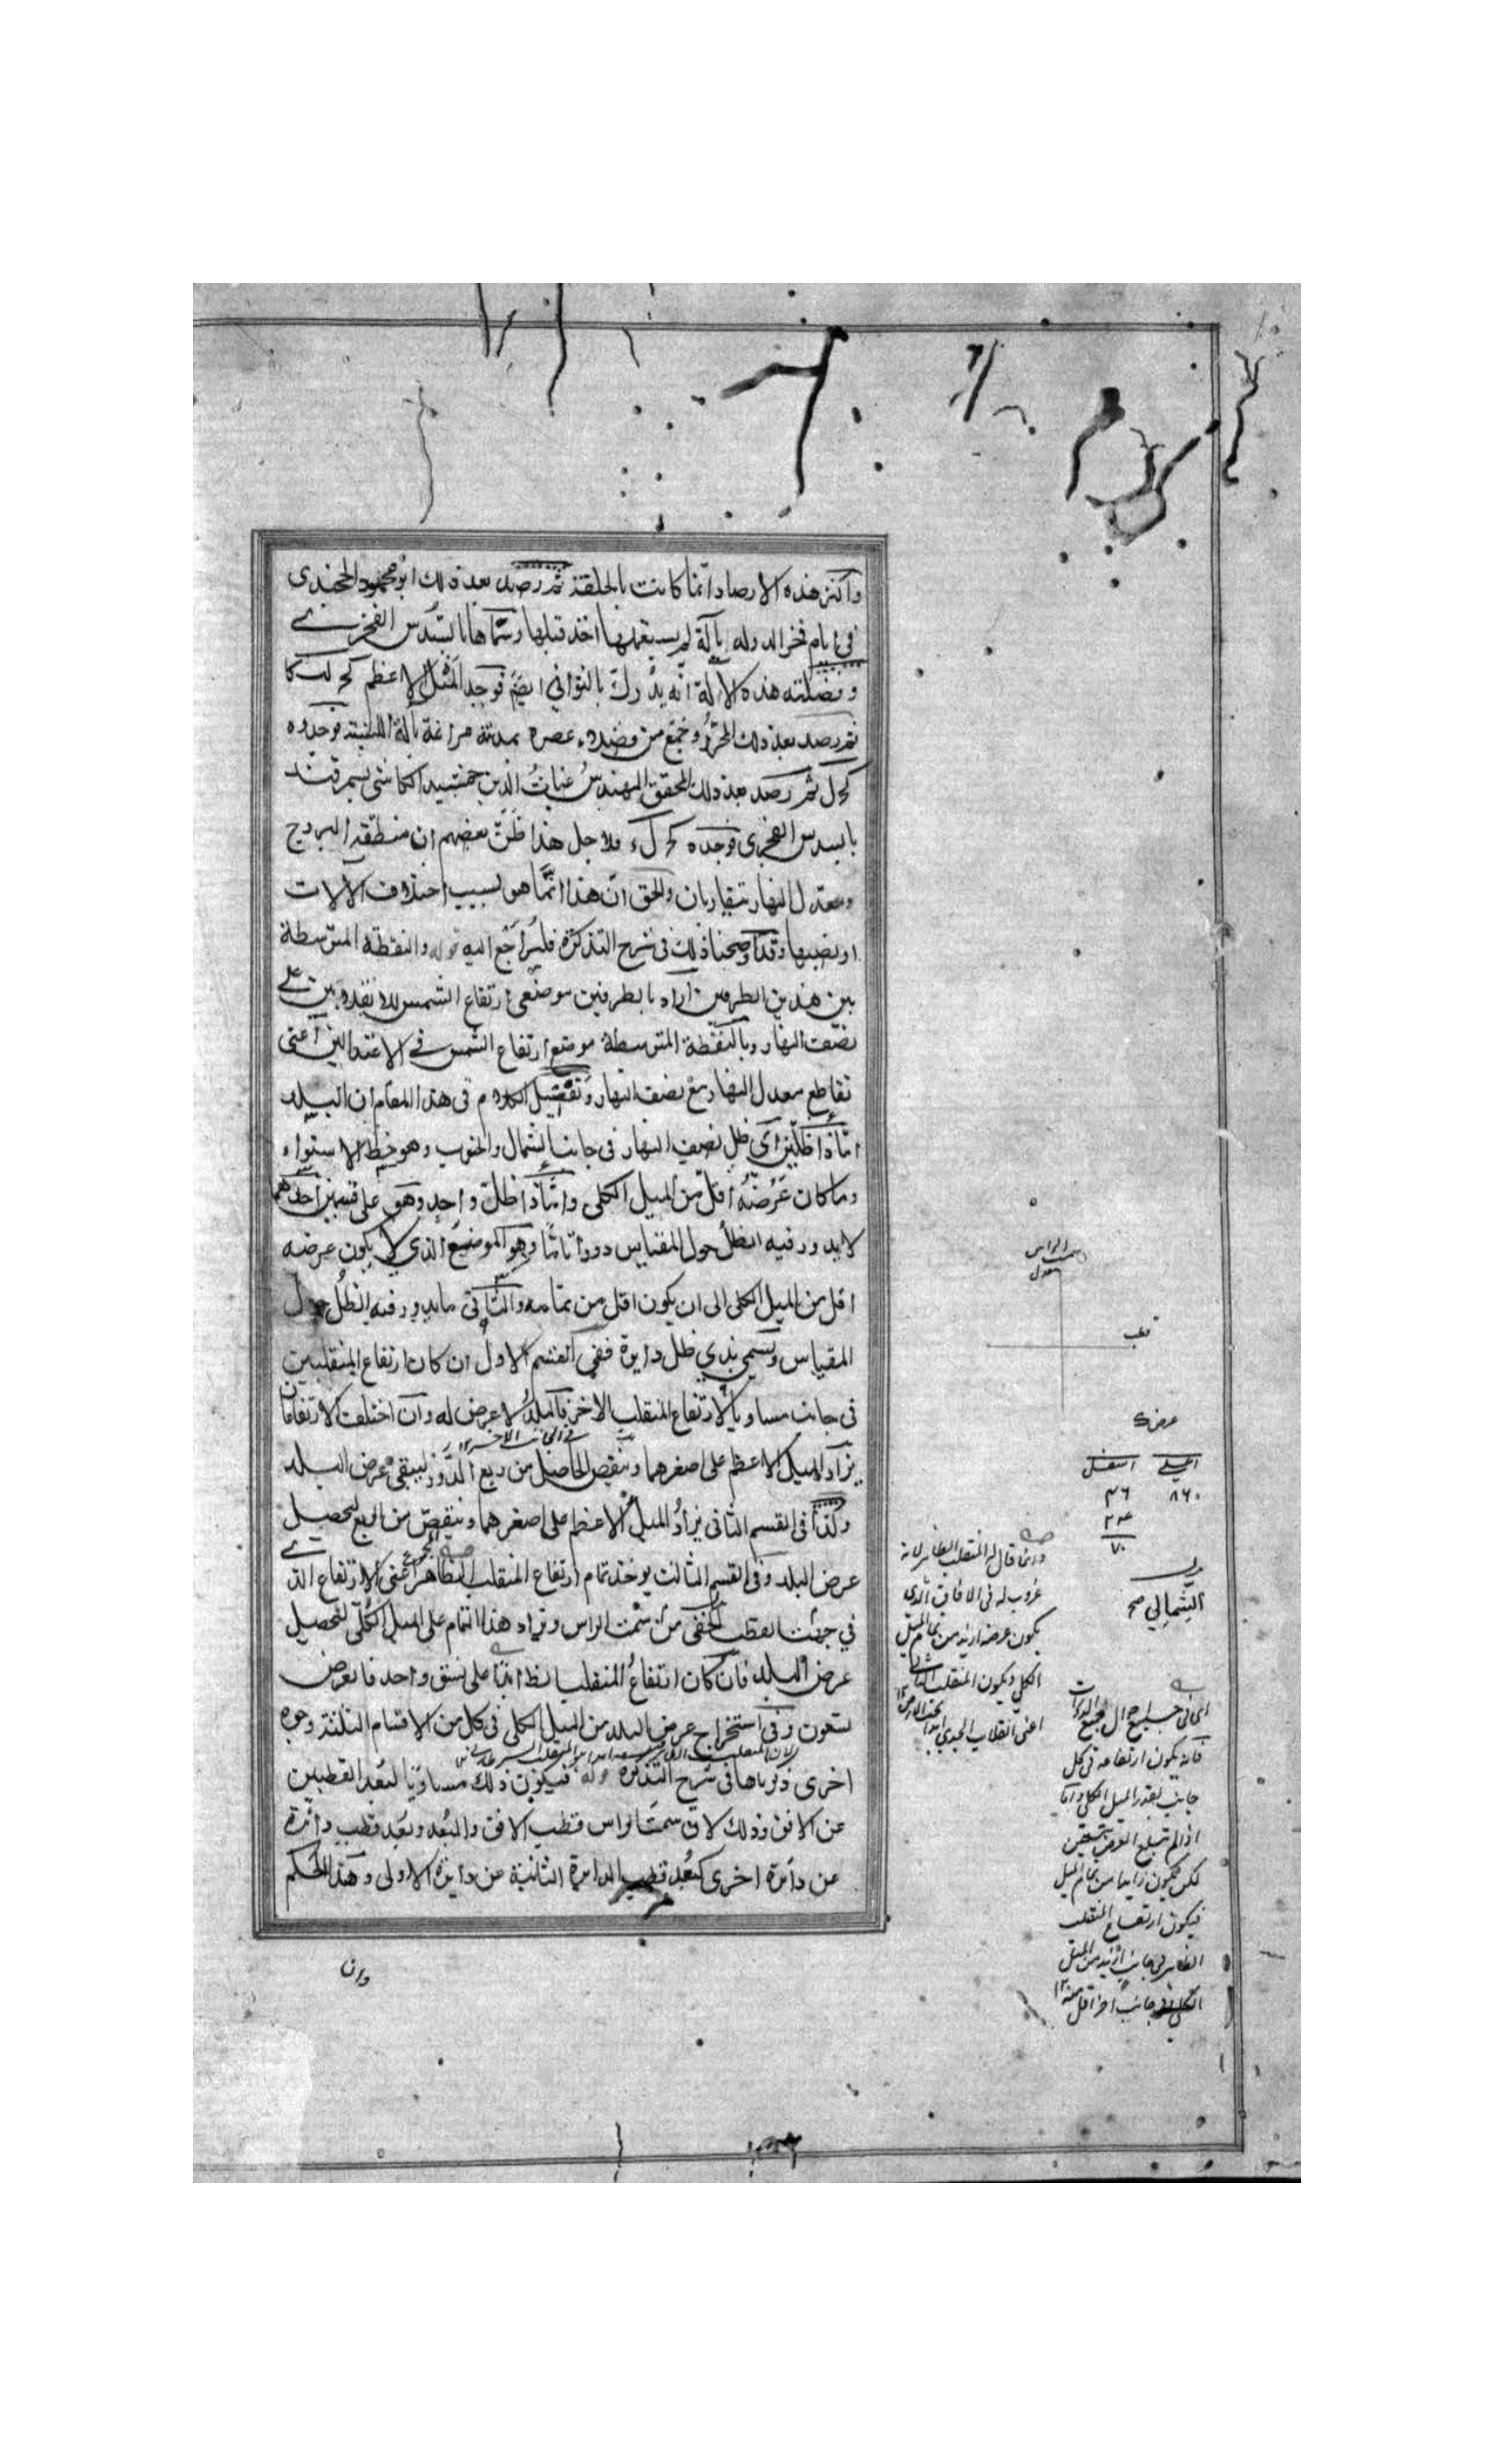 واكثر هذه الارصاد انما كانت بالحلقة ثم رصد بعد ذلك ابو محمود الخجندى
فى ايام فخر الدوله بآلة لم يستعملها احد قبلها وسماها بالسدس الفخرى
وفضيلته هذه الآلة انه يدرك بالثوانى ايضا فوجد الميل الاعظم كج لب كا
ثم رصد بعد ذلك المحرر وجمع من فضلاء عصره بمدينة مراغة بآلة اللبنة فوجدوه
كج ل ثم رصد بعد ذلك المحقق المهندس غياث الدين جمشيد الكاشى بسمرقند
بالسدس الفخرى فوجده كج ل ولاجل هذا ظن بعضهم ان منطقة البروج
ومعدل النهار تتقاربان والحق ان هذا انما هو بسبب اختلاف الآلات
او نصبها وقد اوضحنا ذلك فى شرح التذكرة فليراجع اليه قوله والنقطة المتوسطة
بين هذين الطرفين اراد بالطرفين موضعى ارتفاع الشمس للانقلابين على
نصف النهار وبالنقطة المتوسطة موضع ارتفاع الشمس فى الاعتدالين اعنى
تقاطع معدل النهار مع نصف النهار وتفصيل الكلام فى هذا المقام ان البلد
اما ذا ظلين اى ظل نصف النهار فى جانب الشمال والجنوب وهو خط الاستواء
وما كان عرضه اقل من الميل الكلى واما ذا ظل واحد وهو على قسمين احدهما
لا يدور فيه الظل حول المقياس دورا تاما وهو الموضع الذى لا يكون عرضه
اقل من الميل الكلى الى ان يكون اقل من تمامه والثانى ما يدور فيه الظل حول
المقياس ويسمى بذى ظل دايرة ففى القسم الاول ان كان ارتفاع المنقلبين
فى جانب مساويا لارتفاع المنقلب الاخر فالبلد لا عرض له وان اختلفت الارتفاعان
فى الجانب الاخر
يزاد الميل الاعظم على اصغرهما وينقص الحاصل من ربع الدور ليبقى عرض البلد
وكذا فى القسم الثانى يزاد الميل الاعظم على اصغرهما وينقص من الربع لتحصيل
عرض البلد وفى القسم الثالث يوخذ تمام ارتفاع المنقلب الظاهر اعنى الارتفاع الذى
فى جهت القطب الخفى من سمت الراس ويزاد هذا التمام على الميل الكلى لتحصيل
عرض البلد فان كان ارتفاع المنقلب ابدا على نسق واحد فالعرض
تسعون وفى استخراج عرض البلد من الميل الكلى فى كل من الاقسام الثلثة وجوه
اخرى ذكرناها فى شرح التذكرة قوله فيكون ذلك مساويا لبعد القطبين
عن الافق وذلك لان سمت الراس قطب الافق والبعد وبعد قطب دائرة
عن دائرة اخرى كبعد قطب الدايرة الثانية عن دايرة الاولى وهذا الحكم
وان
سمت الراس
معدل
قطب
عرض
اعلى اسفل
٨٦٠ ٤٦
٧٠
الشمالى صح
وانما قال المنقلب الظاهر لانه
غروب له فى الافاق الذى
يكون عرضه ازيد من تمام الميل
الكلى ويكون المنقلب
اعنى انقلاب الجدى ابدا
فانه يكون ارتفاعه فى كل
جانب بقدر الميل الكلى واما
اذا لم تبلغ العرض تسعين
لكن يكون زايدا من تمام الميل
فيكون ارتفاع المنقلب
الظاهر فى جانب ازيد من الميل
الكلى وفى جانب اخر اقل منه